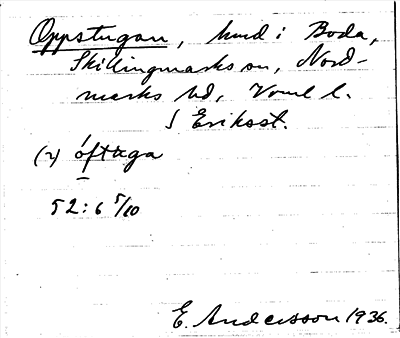 Oppstugan, hmd i Boda,
Skillingmarks sn, Nord-
marks hd, Vrml l.
S Erikset.
(2) óftuga
52:6 5/10
E. Andersson 1936.